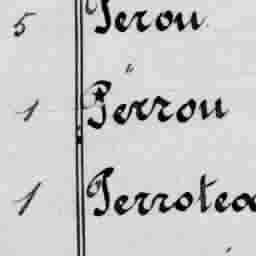 5 Perou
1 Perrou
1 Perrotea